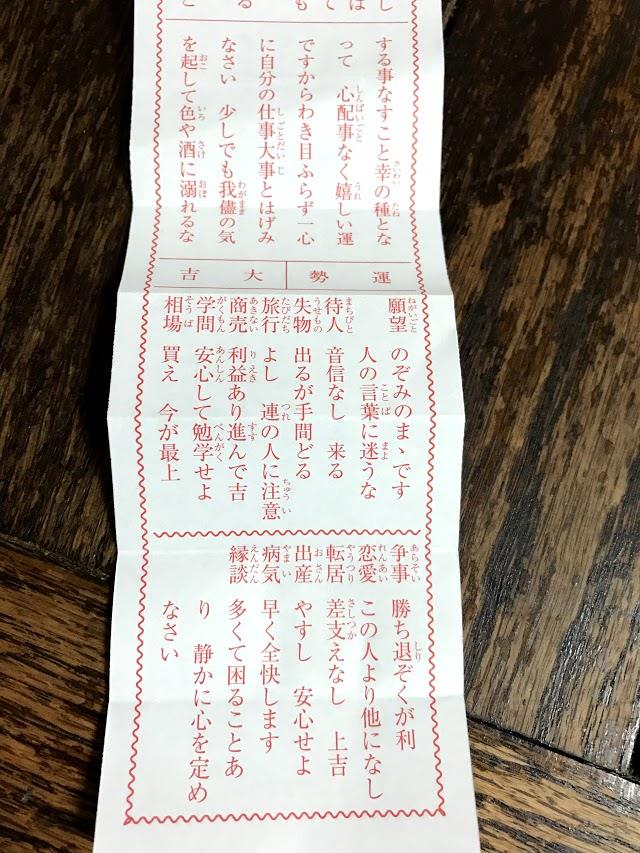 する事なすこと幸の種とな
って　心配事なく嬉しい運
ですからわき目ふらず一心
に自分の仕事大事とはげみ
なさい　少しでも我儘の気
を起して色や酒に溺れるな
運勢　大吉
願望　のぞみのまゝです
人の言葉に迷うな
待人　音信なし　来る
失物　出るが手間どる
旅行　よし　連の人に注意
商売　利益あり進んで吉
学問　安心して勉学せよ
相場　買え　今が最上
争事　勝ち退ぞくが利
恋愛　この人より他になし
転居　差支えなし　上吉
出産　やすし　安心せよ
病気　早く全快します
縁談　多くて困ることあ
り　静かに心を定め
なさい